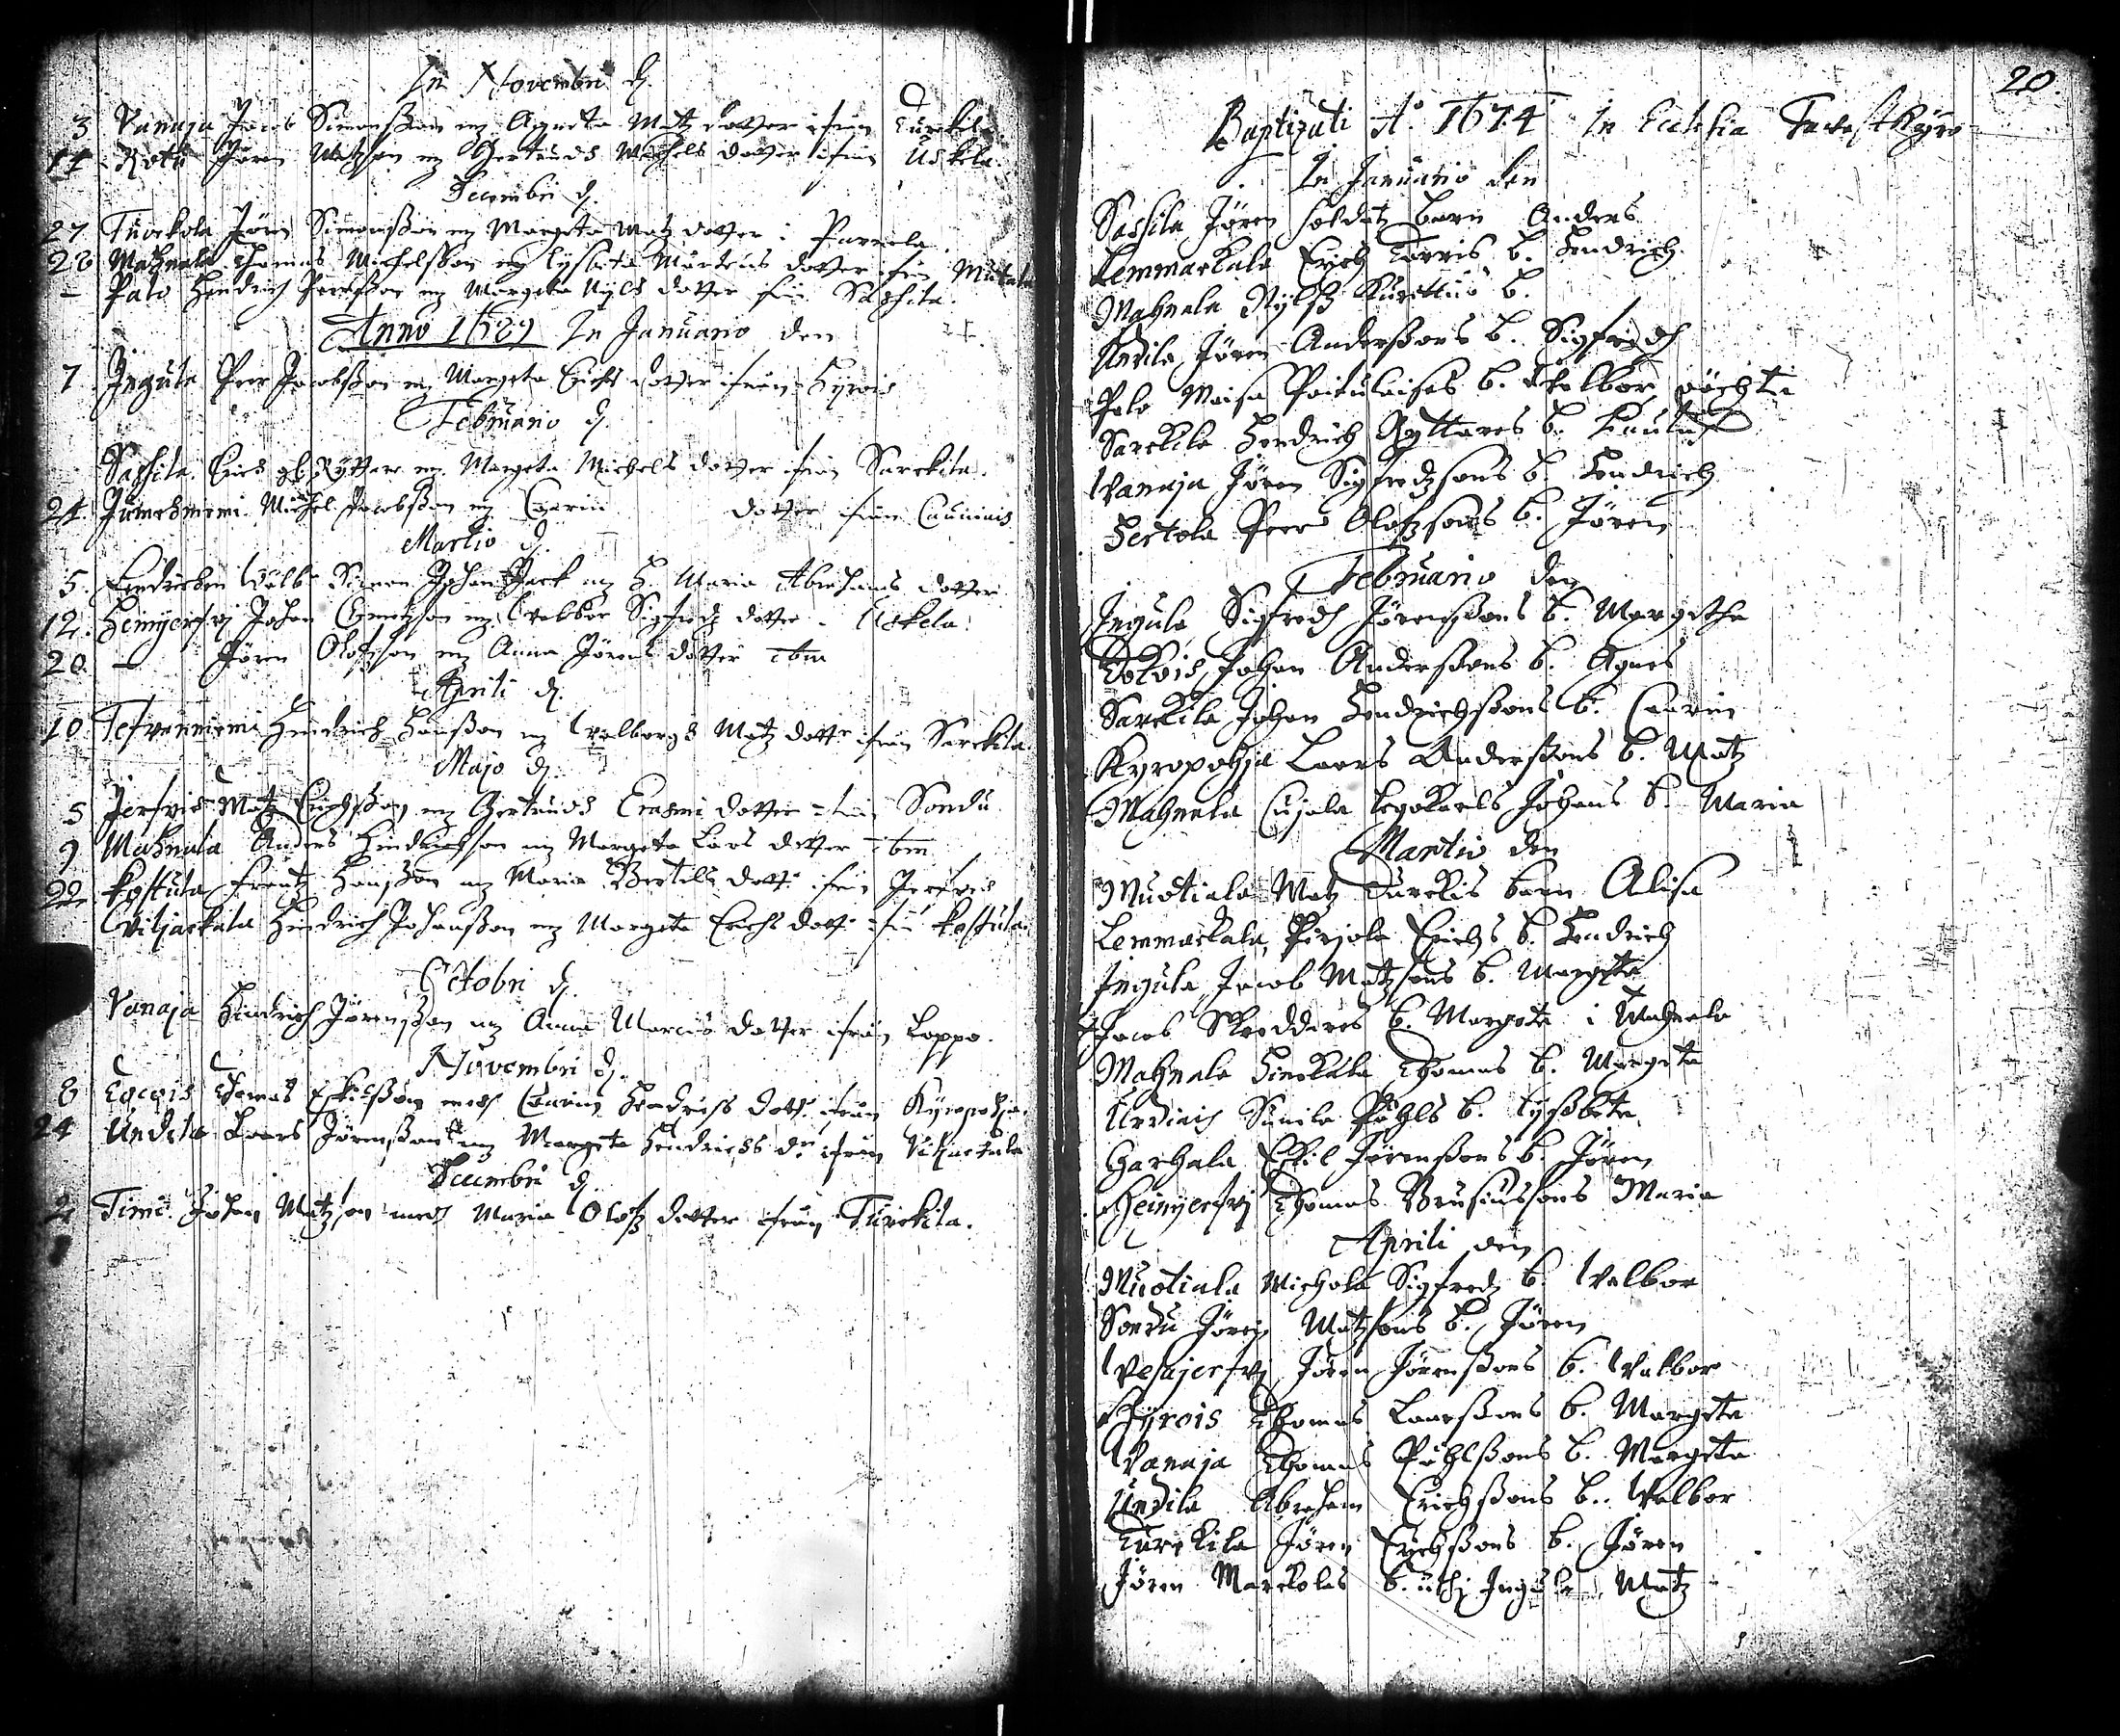 In Novembri d.
3 Vanaja Jacob Simonßon mz Agneta Matz dotter ifrån Turckila
14 Rotu Jören Matzson mz Gertrudh Michels dotter ifrån Uskila.
Decembri d.
27 Turckola Jören Simonßon mz Margeta Matz dotter i Parrila.
28 Mahnala Thomas Michelsson mz Lysbeta Mårtens dotter ifrån
– Palo Hendrich Peersßon mz Margeta Nyls dotter från Saßila.
Anno 1689 In Januario den
7 Ingula Peer Jacobßon mz Margeta Erichs dotter ifrån Hÿrois
Februario d.
Saßila Erich Ryttare mz Margeta Michels dotter ifrån Sarckila.
24. Jumesniemi Michel Jacobßon mz Caarin dotter ifrån
Martio d.
5. Simon Johan mz H. Maria Abrahams dotter
12. Heinijerfvj Johan mz Valbor Sigfredz dotter – Uskela.
20. – Jören Olofzson mz Anna Jörens dotter ibm
Aprili d.
10 Tefvaniemi Hendrich Hanßon mz Valborg Matz dotter ifrån Sarckila
Majo d.
5 Jerfvis Matz Erichßon mz Gertrudh Erasmi dotter ifrån Sondu
9 Mahnala Anders Hindrichson mz Margeta Lars dotter ibm
22 Kostula Frantz Hanßon mz Maria Bertills dotter ifrån Jerfvis
Viljackala Hendrich Johanßon mz Margeta Erichs dotter ifrån Kostula
Octobri d.
Vanaja Hindrich Jörenßon mz Anna Marcus dotter ifrån Loppo.
Novembri d.
8 Thomas Eskilßon medh Caarin Hendrichs dotter ifrån Kyropohja.
24 Undila Laars Jörenßon mz Margeta Hendrichs dr ifrån Viljackala
Decembri d.
2 Timi Johan Matzson medh Maria Olofz dotter ifrån Turckila.
20.
Baptizati Ao 1674 In Ecclesia Tavastkÿro
In Januario den
Saßila Jören Soldatz barn Anders
Lemmackala Erich Torris b. Hendrich
Mahnala Nylß b.
Undila Jören Anderßons b. Sigfredh
Palo Maisa b. Valbor
Sarckila Hendrich Ryttares b.
Vanaja Jören Sigfredzsons b. Hendrich
Hertola Peer Olofzsons b. Jören
Februario den
Ingula Sigfredh Jörenßons b. Margetha
Johan Anderßons b. Agnes
Sarckila Johan Hendrichßons b. Caarin
Kyropohja Laars Anderßons b. Matz
Mahnala Cujala Johans b. Maria
Martio den
Muotiala Matz Turckis barn Alisa
Lemmackala Pirjola Erichs b. Hendrich
Ingula Jacob Matzsons b. Margeta
Jacob Skreddares b. Margeta i Mahnala
Mahnala Thomas b. Margeta
Simila Påhls b. Lysbeta
Harhala Eskil Jörenßons b. Jören
Heinijerfvj Thomas Brusiussons Maria
Aprili den
Muotiala Michola Sigfredz b. Valbor
Sondu Jören Matzsons b. Jören
Vesajerfvj Jören Jörenßons b. Valbor
Hÿrois Thomas Laarßons b. Margeta
Vanaja Thomas Påhlßons b. Margeta
Undila Abraham Erichßons b. Valbor
Turckila Jören Erichßons b. Jören
Jören Marckolas b. uthj Ingula Matz